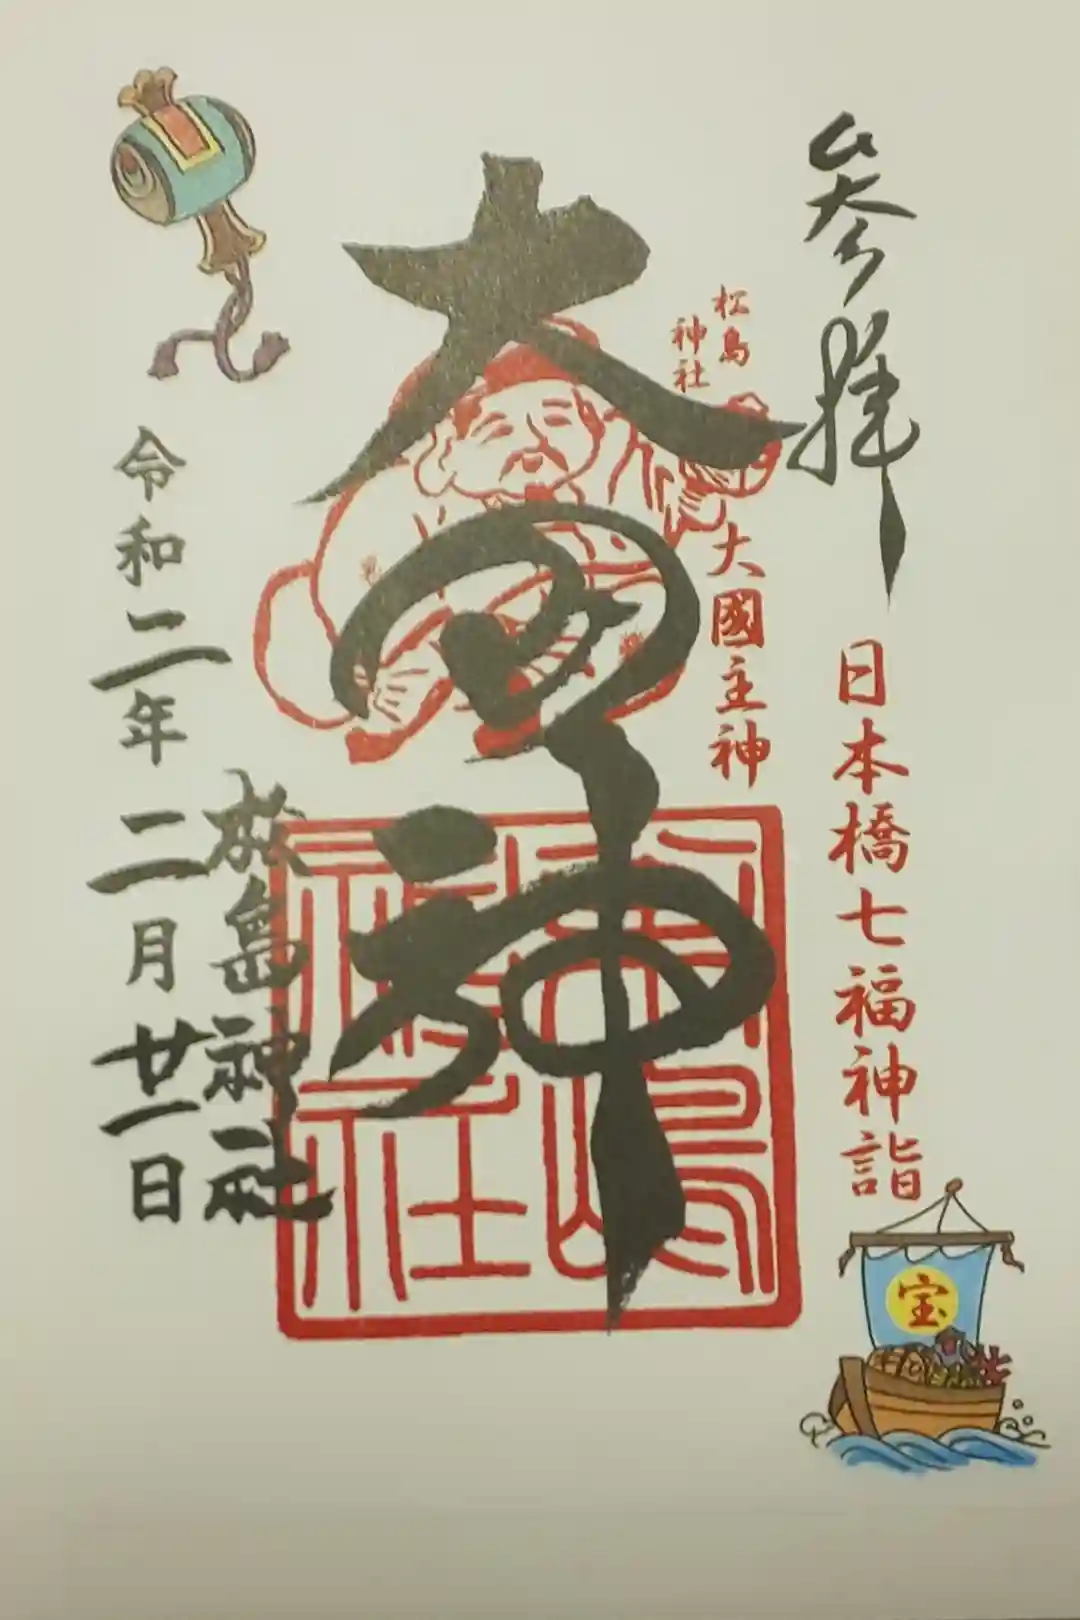 参拝
日本橋七福神詣
宝
松島
神社
大國主神
大国神
松島神社
令和二年二月廿一日